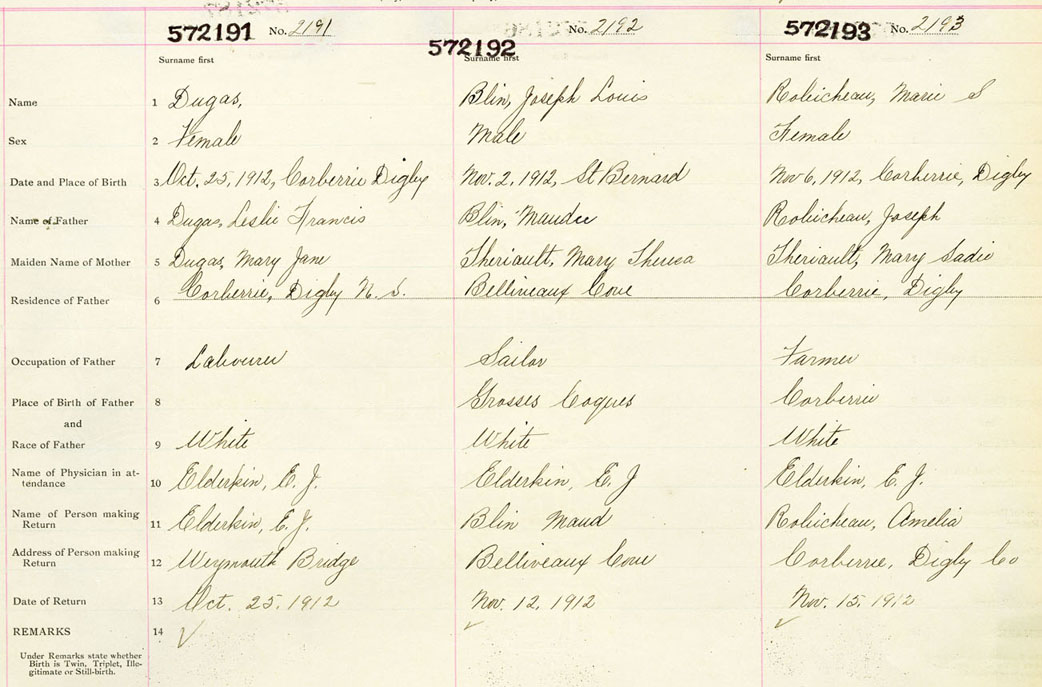 572191 No. 2191 572192 No. 2192 572193 No. 2193
Surname first Surname first Surname first
Name 1 Dugas, Blin, Joseph Louis Robicheau, Marie S
Sex 2 Female Male Female
Date and Place of Birth 3 Oct. 25, 1912, Corberrie Digby Nov. 2, 1912, St Bernard Nov 6, 1912, Corberrie, Digby
Name of Father 4 Dugas, Leslie Francis Blin, Robicheau, Joseph
Maiden Name of Mother 5 Dugas, Mary Jane Theriault, Mary Theresa Theriault, Mary Sadie
Residence of Father 6 Corberrie, Digby N. S. Belliveaux Cove Corberrie, Digby
Occupation of Father 7 Labourer Sailor Farmer
Place of Birth of Father 8 Grosses Coques Corberrie
and
Race of Father 9 White White White
Name of Physician in at-
tendance 10 Elderkin, E. J. Elderkin, E. J Elderkin, E. J.
Name of Person making
Return 11 Elderkin, E. J. Blin Maud Robicheau, Amelia
Address of Person making
Return 12 Weymouth Bridge Belliveaux Cove Corberrie, Digby Co
Date of Return 13 Oct. 25. 1912 Nov. 12. 1912 Nov. 15. 1912
REMARKS 14 ✓ ✓ ✓
Under Remarks state whether
Birth is Twin, Triplet, Ille-
gitimate or Still-birth.